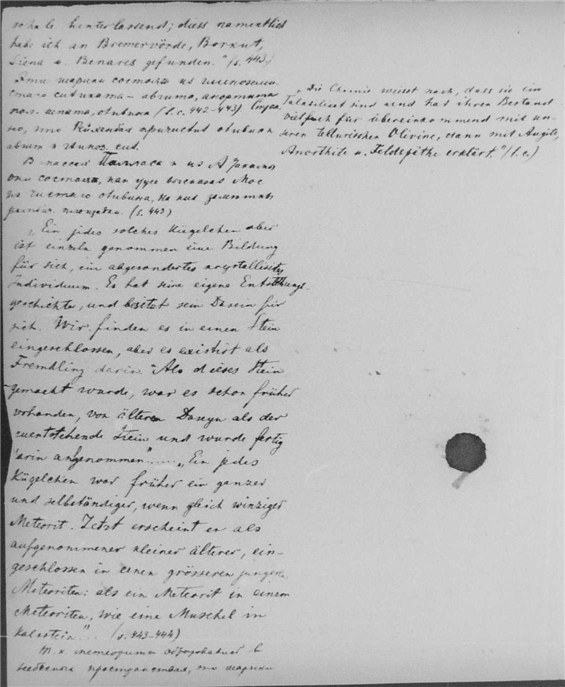 schale hinterlassend; diess namentlich
habe ich an Bremervörde, Borkut,
Siena u. Benares gefunden." (s. 443)
Эти шарики состоятъ из
силиката - авгита, анортита
пол. шпата, оливина (l. c. 442-443)
но, что оливин,
авгит и
В массе Палласа и из Атакамы
они состоят, как уже
из чистаго оливина, но
площадки. (s. 443)
„Ein jedes solches Kügelchen aber
ist einzeln genommen eine Bildung
für sich, ein abgesondertes krystallisirtes
Individuum. Es hat seine eigene Entstehungs-
geschichte, und besitzt sein Dasein für
sich. Wir finden es in einen Stein
eingeschlossen, aber es existirt als
Fremdling darin. Als dieses Stein
gemacht wurde, war es schon früher
vorhanden, von älteren Daseyn als der
entstehende Stein und wurde fertig
darin aufgenommen"..... „Ein jedes
Kügelchen war früher ein ganzer
und selbständiger, wenn gleich winziger
Meteorit. Jetzt erscheint er als
aufgenommener kleiner älterer, ein-
geschlossen in einen grösseren jungern
Meteoriten: als ein Meteorit in einem
Meteoriten, wie eine Muschel in
Kalkstein"... (s. 443-444)
Т. к. метеориты в
пространстве, то шарики
„Die Chemie weiset nach, dass sie ein
Talksilicat sind und hat ihren Bestand
vielfach für übereinkommend mit un-
seren tellurischen Olivine, dann mit Augite,
Anorthite u. Feldspäthe erklärt." (l. c.)